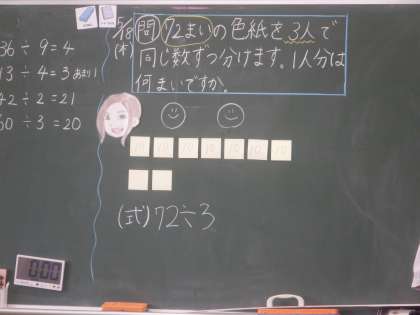 36÷9=4
13÷4=3あまり1
42÷2=21
60÷3=20
5/18
(木)
問 72まいの色紙を3人で
同じ数ずつ分けます。1人分は
何まいですか。
10 10 10 10 10 10 10
(式)72÷3
0:00